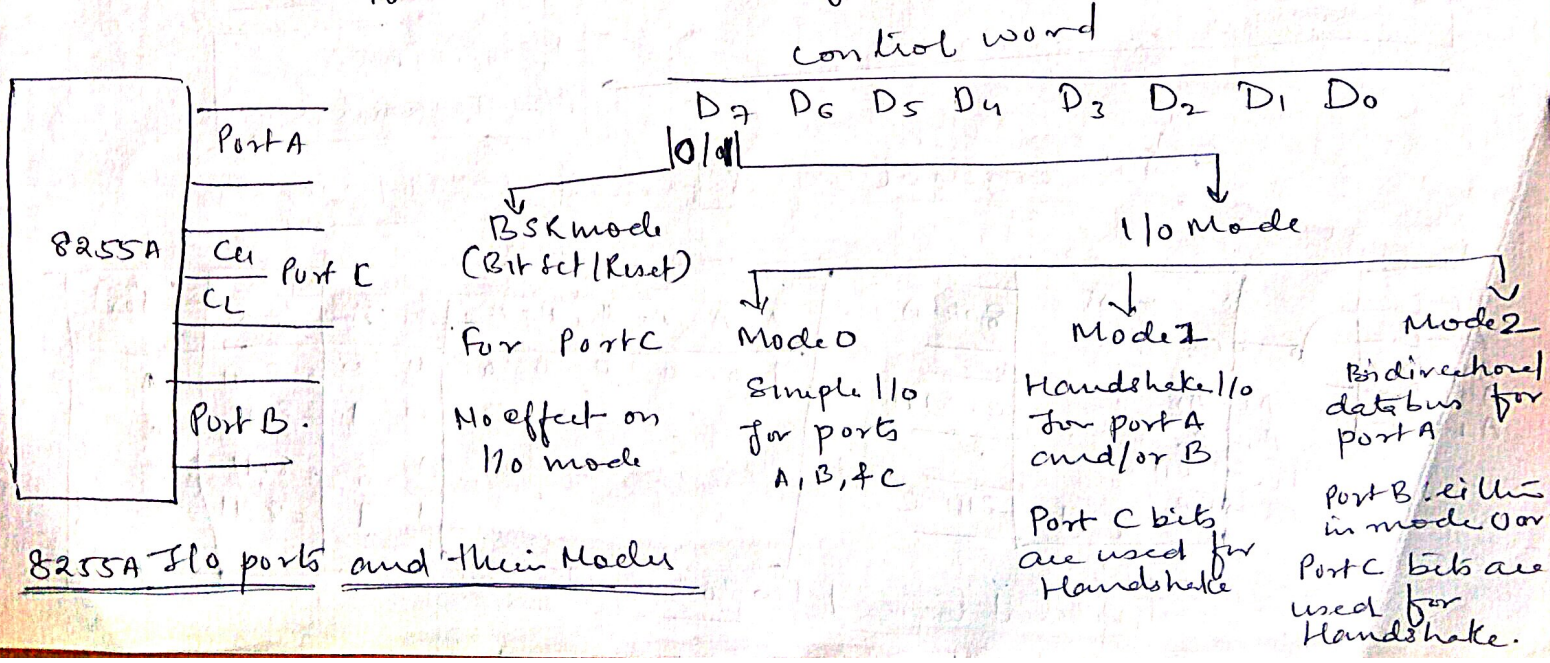 control word
D7 D6 D5 D4 D3 D2 D1 D0
0/1
Port A
8255A
CU
Port C
CL
Port B.
BSR mode
(Bit Set / Reset)
For Port C
No effect on
I/O mode
I/O Mode
Mode 0
Simple I/O
for ports
A, B, & C
Mode 1
Handshake I/O
for port A
and/or B
Port C bits
are used for
Handshake
Mode 2
Bidirectional
data bus for
port A
Port B either
in mode 0 or
Port C bits are
used for
Handshake.
8255A I/O ports and their Modes